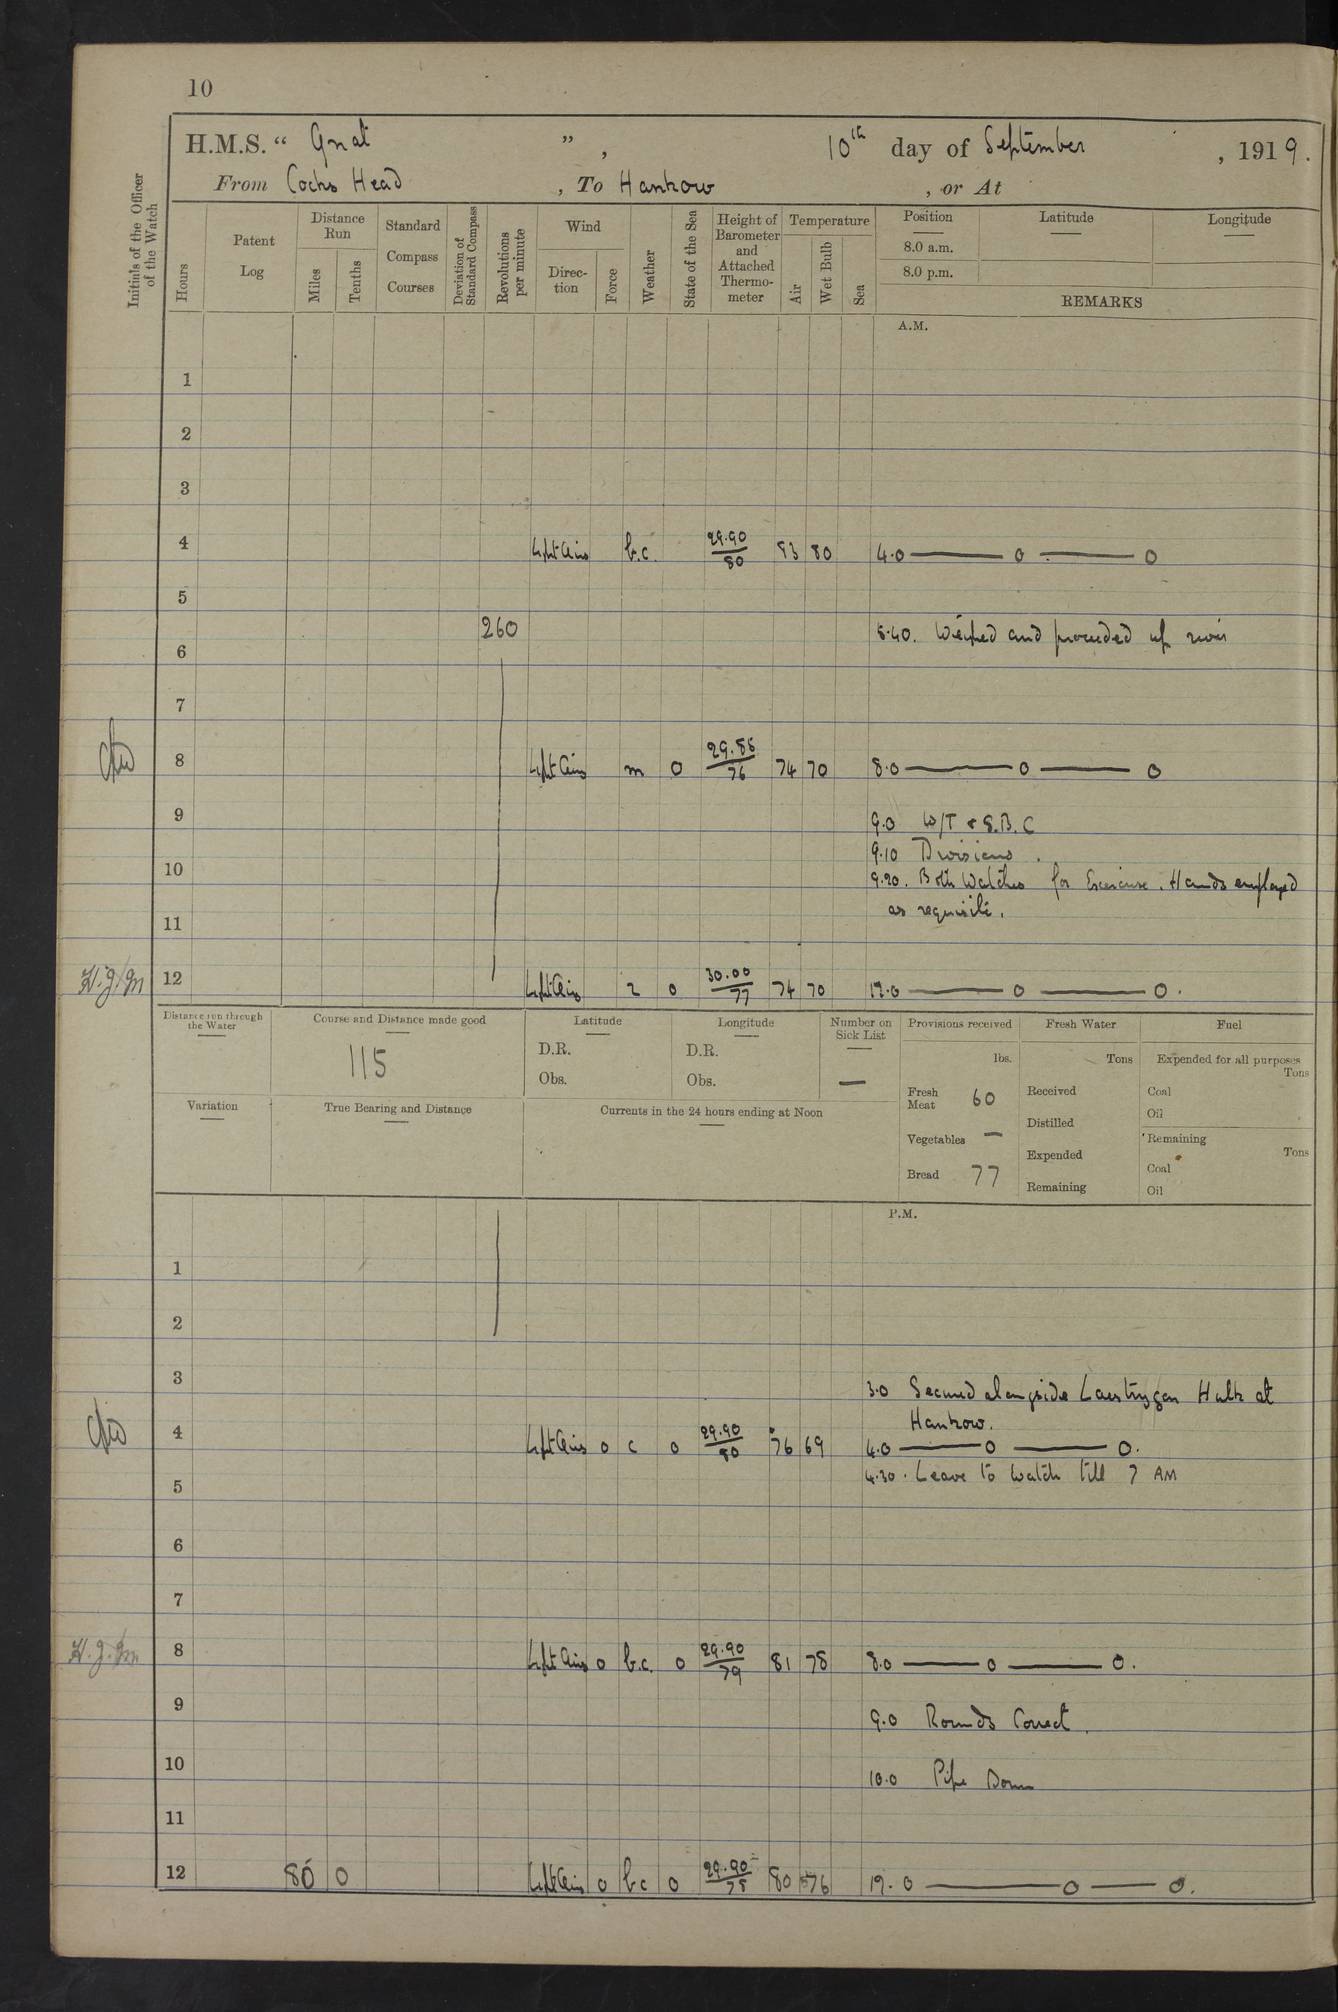 10
H.M.S. “ Gnat ” , 10th day of September , 1919.
From Cocks Head , To Hankow , or At
Initials of the Officer of the Watch
Hours
Patent Log
Distance Run
Miles
Tenths
Standard Compass Courses
Deviation of Standard Compass
Revolutions per minute
Wind
Direc- tion
Force
Weather
State of the Sea
Height of Barometer and Attached Thermo- meter
Temperature
Air
Wet Bulb
Sea
Position Latitude Longitude
8.0 a.m.
8.0 p.m.
REMARKS
A.M.
1
2
3
4 Light Airs b.c. 29.90/80 83 80 4.0 — o — o
5
260 5.40. Weighed and proceeded up river
6
7
8 Light Airs m 0 29.88/76 74 70 8.0 — o — o
9 9.0 W/T & S.B.C
9.10 Divisions.
10 9.20. Both Watches for Exercise. Hands employed
as requisite.
11
H.J.M 12 Light Airs 0 30.00/77 74 70 12.0 — o — o.
Distance run through the Water
Course and Distance made good
115
Latitude
D.R.
Obs.
Longitude
D.R.
Obs.
Number on Sick List
—
Provisions received
lbs.
Fresh Meat 60
Vegetables —
Bread 77
Fresh Water
Tons
Received
Distilled
Expended
Remaining
Fuel
Expended for all purposes
Tons
Coal
Oil
Remaining
Tons
Coal
Oil
Variation
True Bearing and Distance
Currents in the 24 hours ending at Noon
P.M.
1
2
3 3.0 Secured alongside Laestrygon Hulk at
Hankow.
4 Light Airs 0 c 0 29.90/80 76 69 4.0 — o — o.
4.30. Leave to Watch till 7 AM
5
6
7
H.J.M 8 Light Airs 0 b.c. 0 29.90/79 81 78 8.0 — o — o.
9 9.0 Rounds Correct.
10 10.0 Pipe Down
11
12 80 0 Light Airs 0 bc 0 29.90/78 80 76 12.0 — o — o.